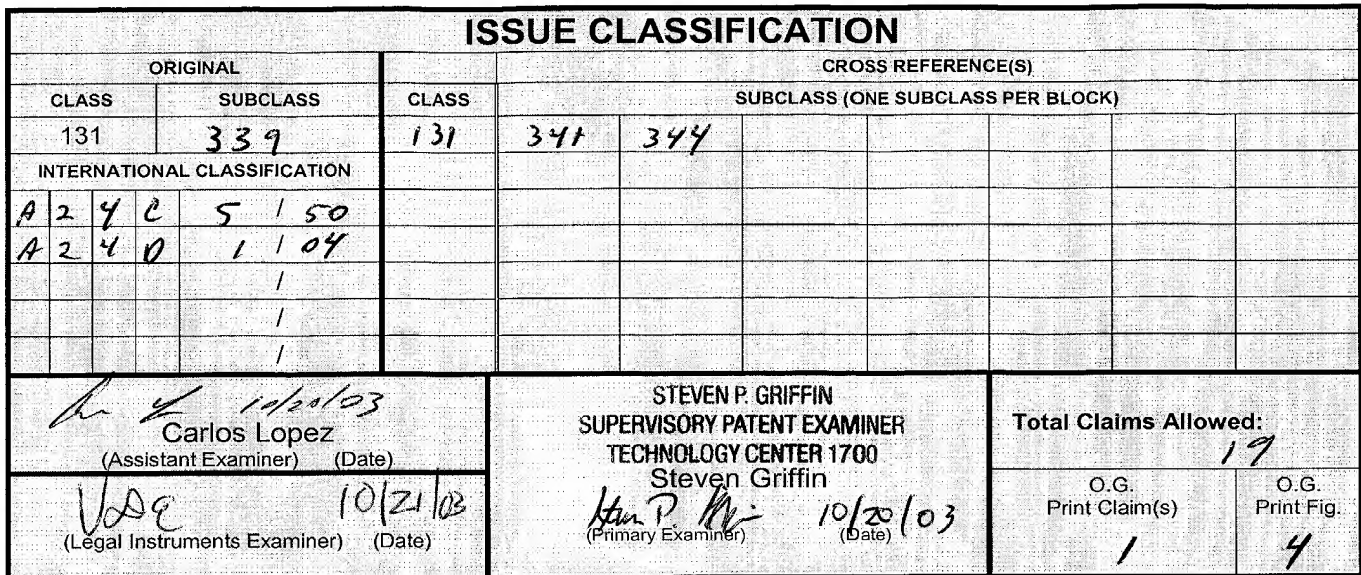 ISSUE CLASSIFICATION
ORIGINAL CROSS REFERENCE(S)
CLASS SUBCLASS CLASS SUBCLASS (ONE SUBCLASS PER BLOCK)
131 339 131 341 344
INTERNATIONAL CLASSIFICATION
A 2 4 C 5 / 50
A 2 4 D 1 / 04
/
/
/
10/20/03
Carlos Lopez
(Assistant Examiner) (Date)
10/21/03
(Legal Instruments Examiner) (Date)
STEVEN P. GRIFFIN
SUPERVISORY PATENT EXAMINER
TECHNOLOGY CENTER 1700
Steven Griffin
10/20/03
(Primary Examiner) (Date)
Total Claims Allowed:
19
O.G. O.G.
Print Claim(s) Print Fig.
1 4